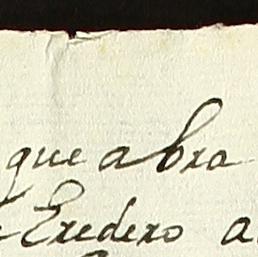 que abra
Eredero a